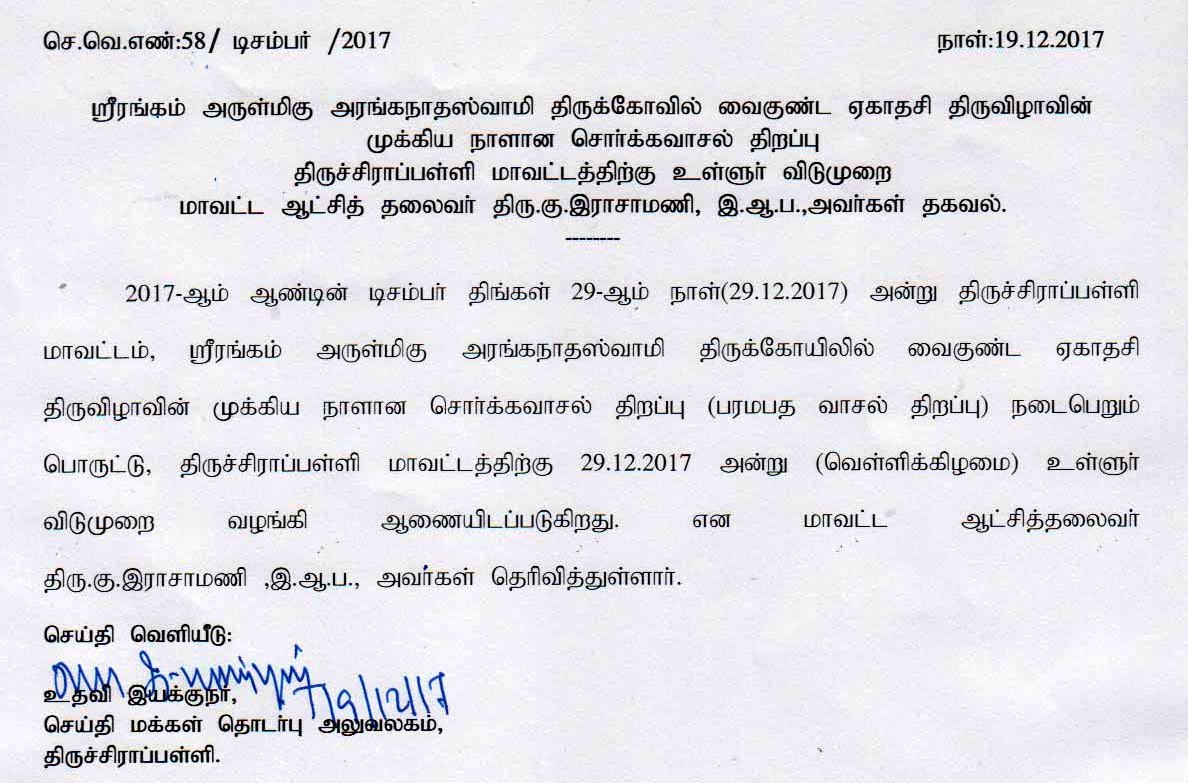 செ.வெ.எண்:58/ டிசம்பர் /2017 நாள்:19.12.2017
ஸ்ரீரங்கம் அருள்மிகு அரங்கநாதஸ்வாமி திருக்கோவில் வைகுண்ட ஏகாதசி திருவிழாவின்
முக்கிய நாளான சொர்க்கவாசல் திறப்பு
திருச்சிராப்பள்ளி மாவட்டத்திற்கு உள்ளுர் விடுமுறை
மாவட்ட ஆட்சித் தலைவர் திரு.கு.இராசாமணி, இ.ஆ.ப.,அவர்கள் தகவல்.
--------
2017-ஆம் ஆண்டின் டிசம்பர் திங்கள் 29-ஆம் நாள்(29.12.2017) அன்று திருச்சிராப்பள்ளி
மாவட்டம், ஸ்ரீரங்கம் அருள்மிகு அரங்கநாதஸ்வாமி திருக்கோயிலில் வைகுண்ட ஏகாதசி
திருவிழாவின் முக்கிய நாளான சொர்க்கவாசல் திறப்பு (பரமபத வாசல் திறப்பு) நடைபெறும்
பொருட்டு, திருச்சிராப்பள்ளி மாவட்டத்திற்கு 29.12.2017 அன்று (வெள்ளிக்கிழமை) உள்ளுர்
விடுமுறை வழங்கி ஆணையிடப்படுகிறது. என மாவட்ட ஆட்சித்தலைவர்
திரு.கு.இராசாமணி ,இ.ஆ.ப., அவர்கள் தெரிவித்துள்ளார்.
செய்தி வெளியீடு:
19/12/17
உதவி இயக்குநர்,
செய்தி மக்கள் தொடர்பு அலுவலகம்,
திருச்சிராப்பள்ளி.